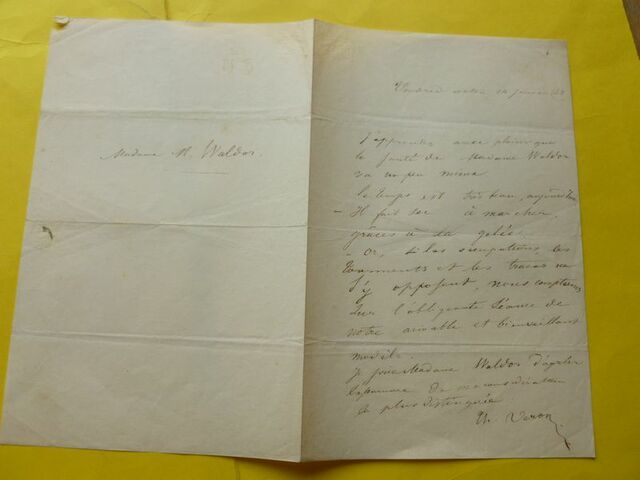 Madame M. Waldor.
Vendredi matin 14 janvier 48
J'apprends avec plaisir que
la santé de Madame Waldor
va un peu mieux
le temps est très beau, aujourd'hui
– Il fait sec à marcher,
grâces à la gelée.
– Or, si les occupations, les
tourments et les tracas ne
s'y opposent, nous comptons
sur l'obligeante séance de
notre aimable et bienveillant
modèle.
Je prie Madame Waldor d'agréer
l'assurance de ma considération
la plus distinguée
Th. Véron